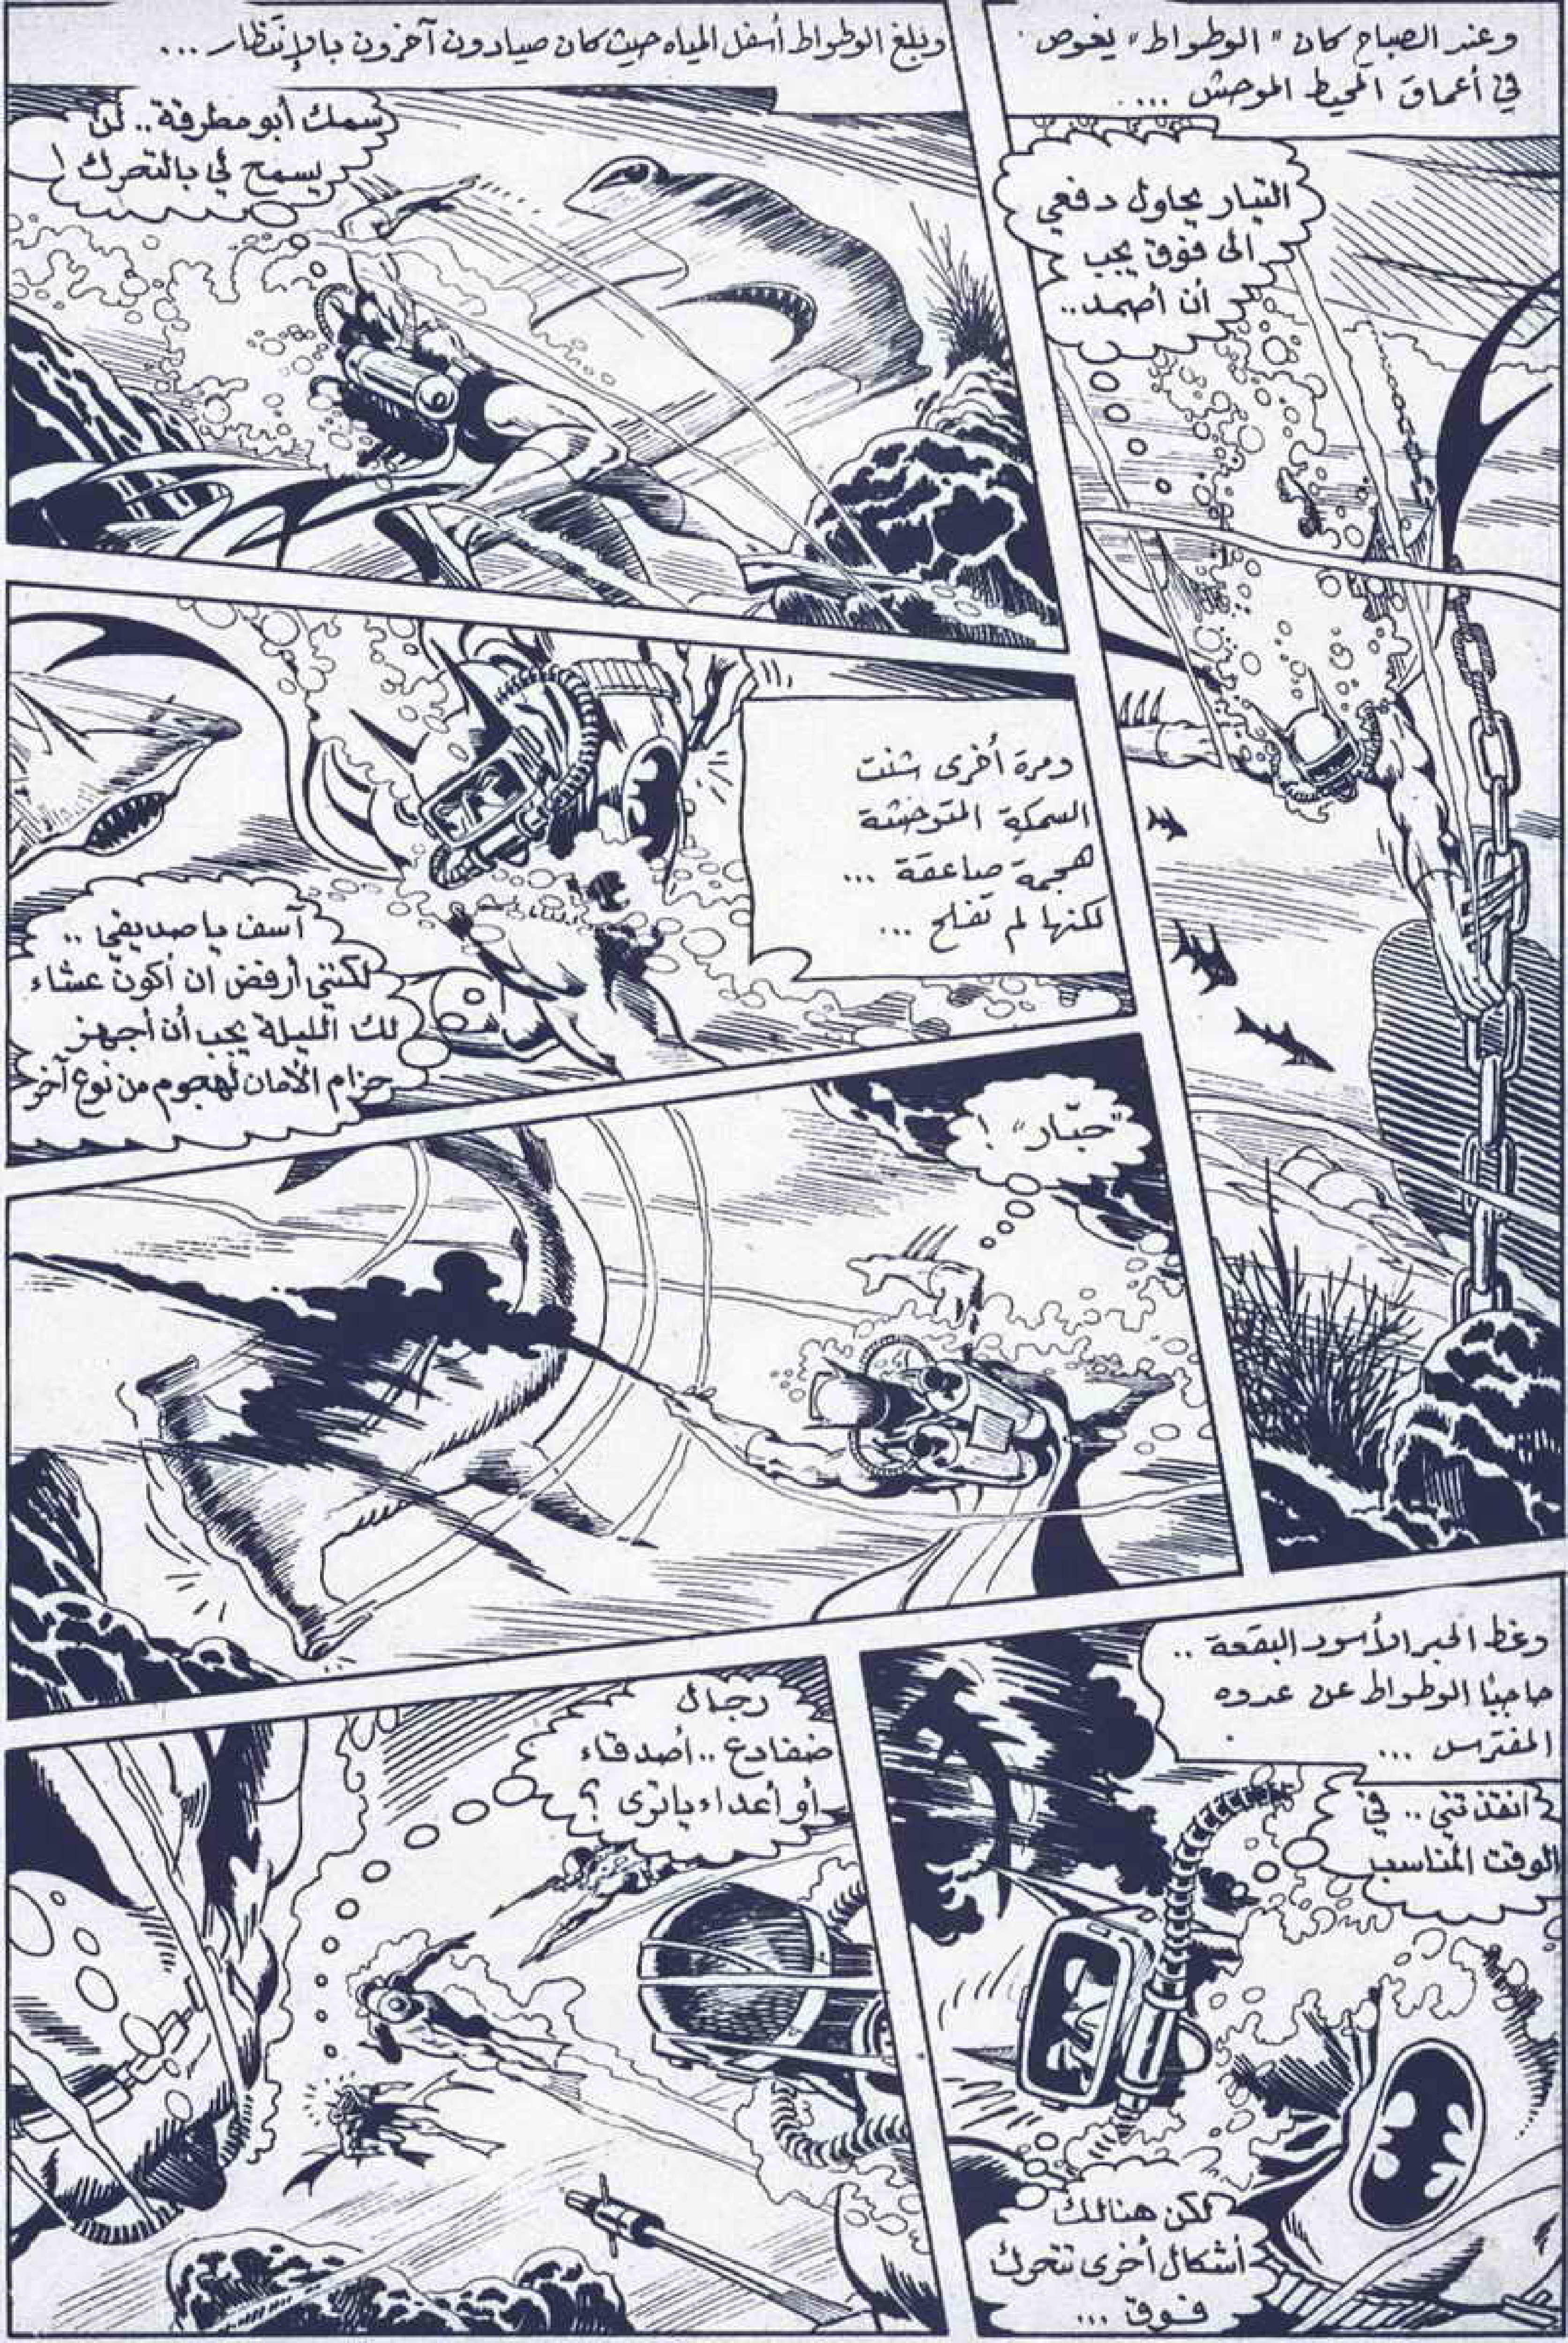 وعند الصباح كان "الوطواط" يغوص
في أعماق المحيط الموحش ....
التيار يحاول دفعي
الى فوق يجب
أن أصمد..
وبلغ الوطواط أسفل المياه حيث كان صيادون آخرون بالإنتظار ...
سمك أبو مطرقة.. لن
يسمح لي بالتحرك !
ومرة أخرى شنت
السمكة المتوحشة
هجمة صاعقة ...
لكنها لم تفلح ...
آسف يا صديقي ..
لكنني أرفض ان أكون عشاء
لك الليلة يجب أن أجهز
حزام الأمان لهجوم من نوع آخر
"جبّار" !
وغط الحبر الأسود البقعة ..
حاجبًا الوطواط عن عدوه
المفترس ...
انقذتني .. في
الوقت المناسب
لكن هنالك
أشكال أخرى تتحرك
فوق ...
رجال
ضفادع .. أصدقاء
أو أعداء يا ترى ؟